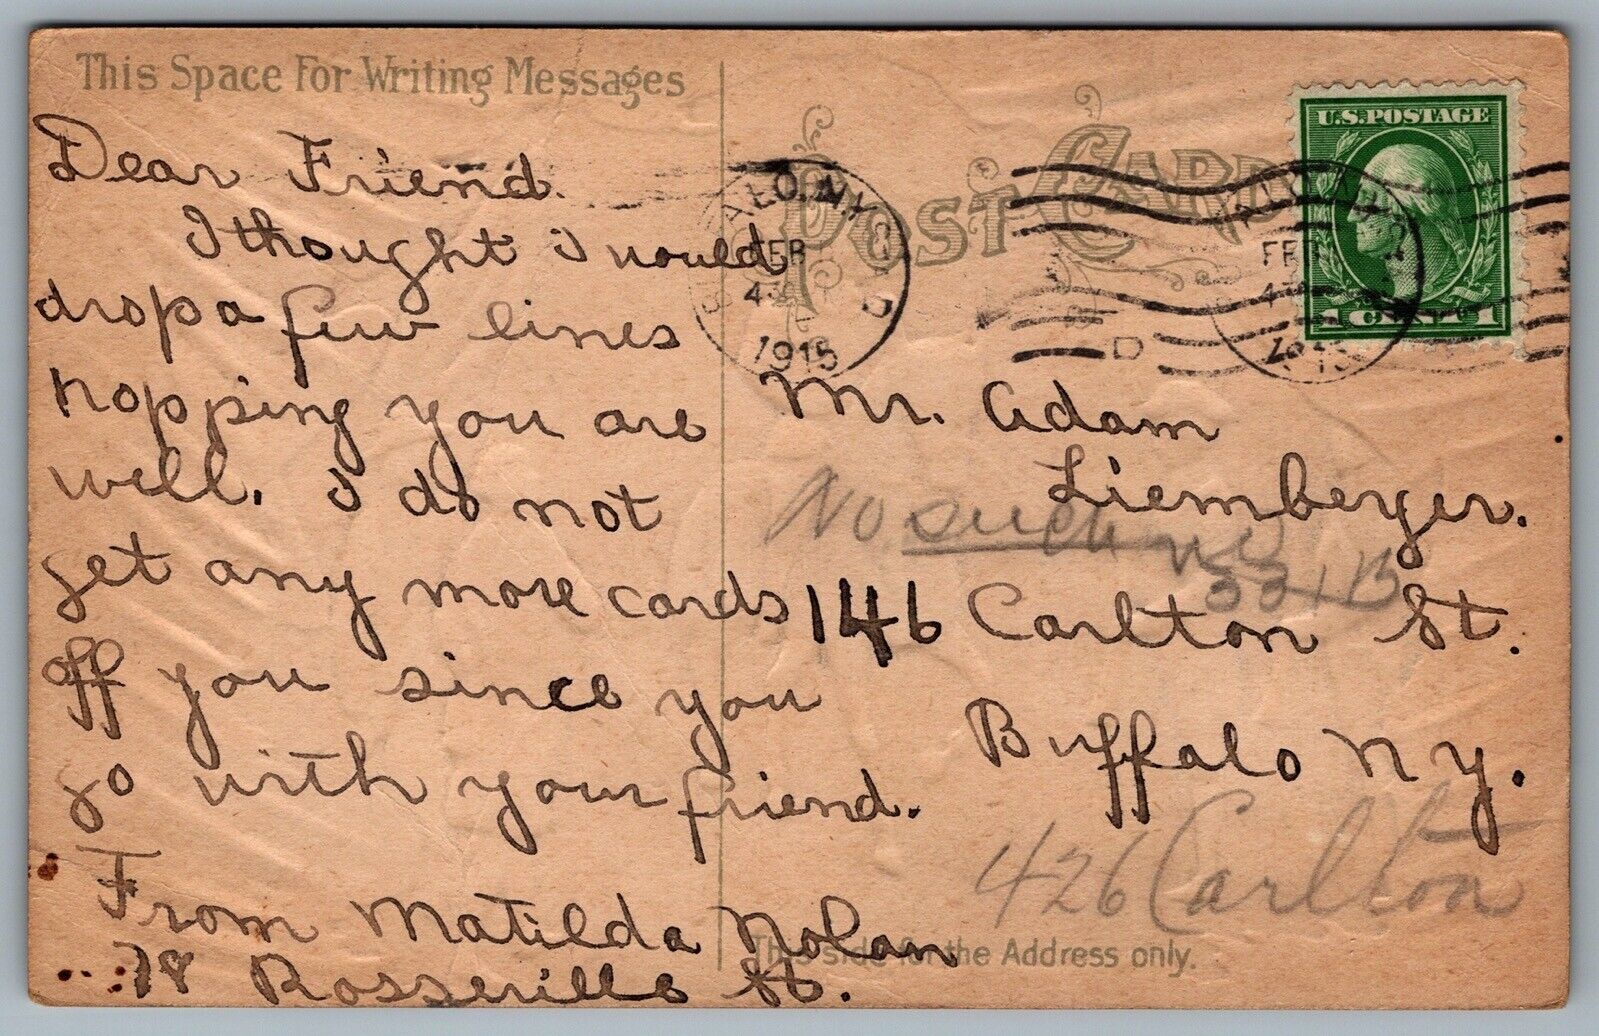 This Space For Writing Messages
POST CARD
U.S. POSTAGE
1 CENT 1
BUFFALO, N.Y.
FEB
4
1915
D
FEB
4
1915
Dear Friend.
I thought I would
drop a few lines
hopping you are
well. I do not
get any more cards
off you since you
go with your friend.
From Matilda Nolan
78 Rosseville St.
Mr. Adam
Liemberger.
146 Carlton St.
Buffalo N Y.
No such no
331 B
426 Carlton
This side for the Address only.